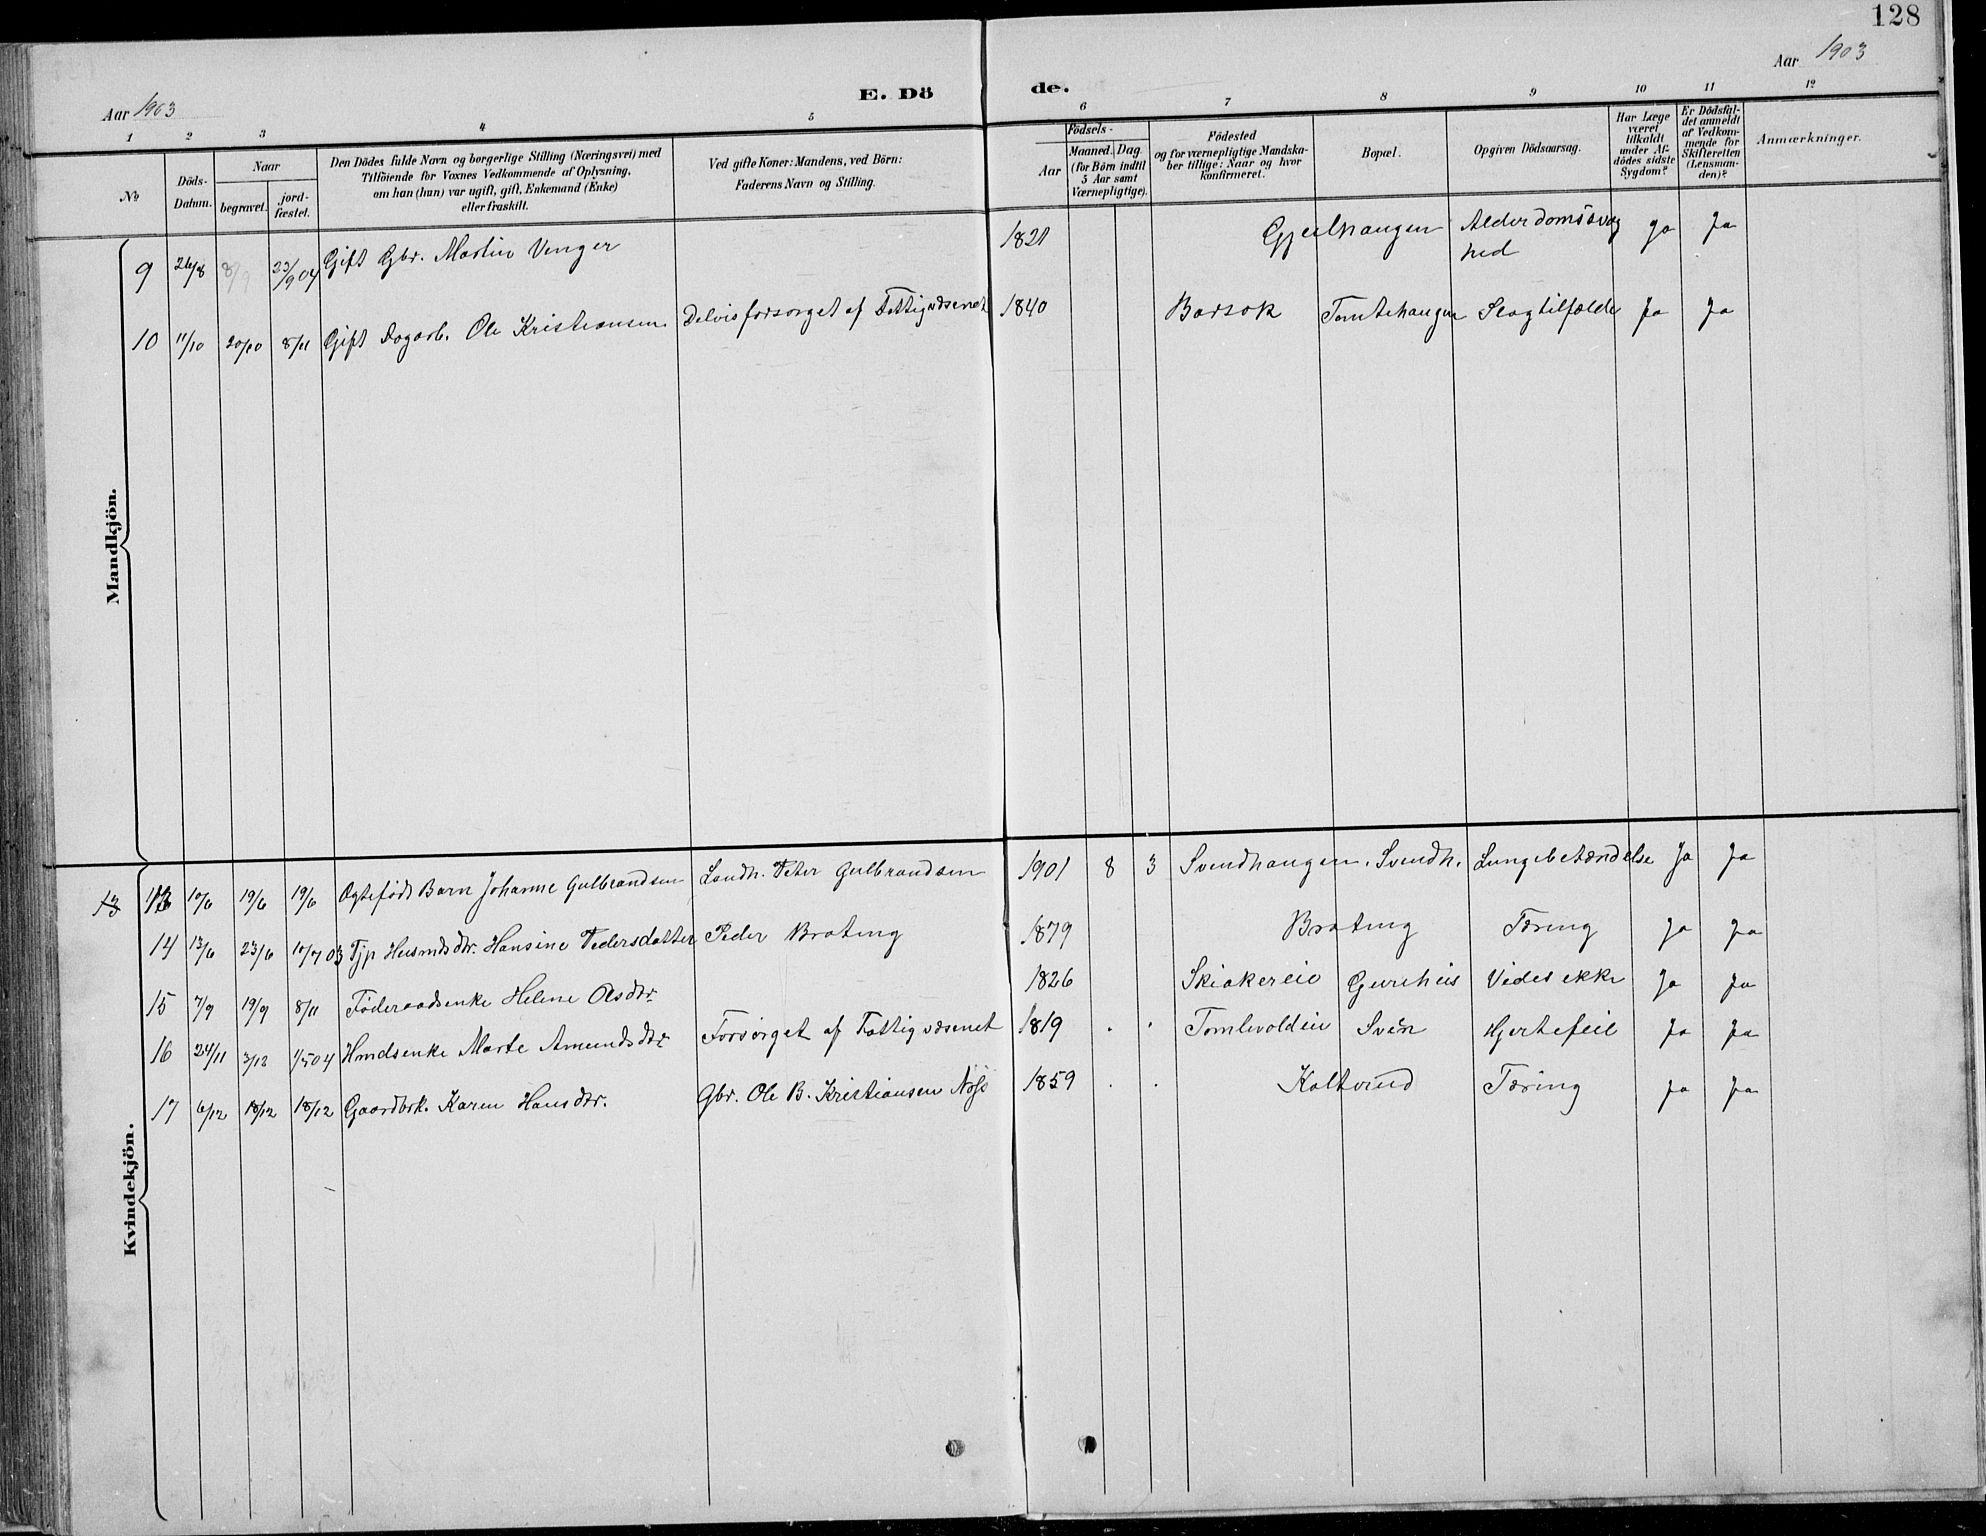 128
Aar 1903
Aar 1903
E. Dö de.
1 2 3 4 5 6 7 8 9 10 11 12
No.
Döds-Datum.
Naar
begravet.
jord-fæstet.
Den Dödes fulde Navn og borgerlige Stilling (Næringsvei) med
Tilföiende for Voxnes Vedkommende af Oplysning,
om han (hun) var ugift, gift, Enkemand (Enke)
eller fraskilt.
Ved gifte Koner: Mandens, ved Börn:
Faderens Navn og Stilling.
Födsels-
Aar
Maaned. Dag.
(for Börn indtil
5 Aar samt
Værnepligtige).
Födested
og for værnepligtige Mandska-
ber tillige: Naar og hvor
konfirmeret.
Bopæl.
Opgiven Dödsaarsag.
Har Læge
været
tilkaldt
under Af-
dödes sidste
Sygdom?
Er Dödsfal-
det anmeldt
af Vedkom-
mende for
Skifteretten
(Lensman-
den)?
Anmærkninger.
Mandkjön.
9 26/8 8/9 23/9 04 Gift Gbr. Martin Venger 1821 Gjeilhaugen Alderdomssvag
hed Ja Ja
10 11/10 20/10 8/11 Gift Dagarb. Ole Kristiansen Delvis forsørget af Fattigvæsenet 1840 Borsok Tomtehaugen Slagtilfælde Ja Ja
Kvindekjön.
13 13 10/6 19/6 19/6 Ægtefødt Barn Johanne Gulbrandsen Landh. Peter Gulbrandsen 1901 8 3 Svendhaugen. Svendh. Lungebetændelse Ja Ja
14 13/6 23/6 10/7 03 Tjp Husmdsdtr. Hansine Pedersdatter Peder Brating 1879 Brating Tæring Ja Ja
15 7/9 19/9 8/11 Føderaadsenke Helene Olsdtr. 1826 Skiakereie Vides ikke Ja Ja
16 24/11 3/12 1/5 04 Hmdsenke Marte Amundsdtr. Forsørget af Fattigvæsenet 1819 . . Tomlevolden Svën Hjertefeil Ja Ja
17 6/12 18/12 18/12 Gaardbrk. Karen Hansdtr. Gbr. Ole B. Kristiansen 1859 . . Koltvedt Tæring Ja Ja